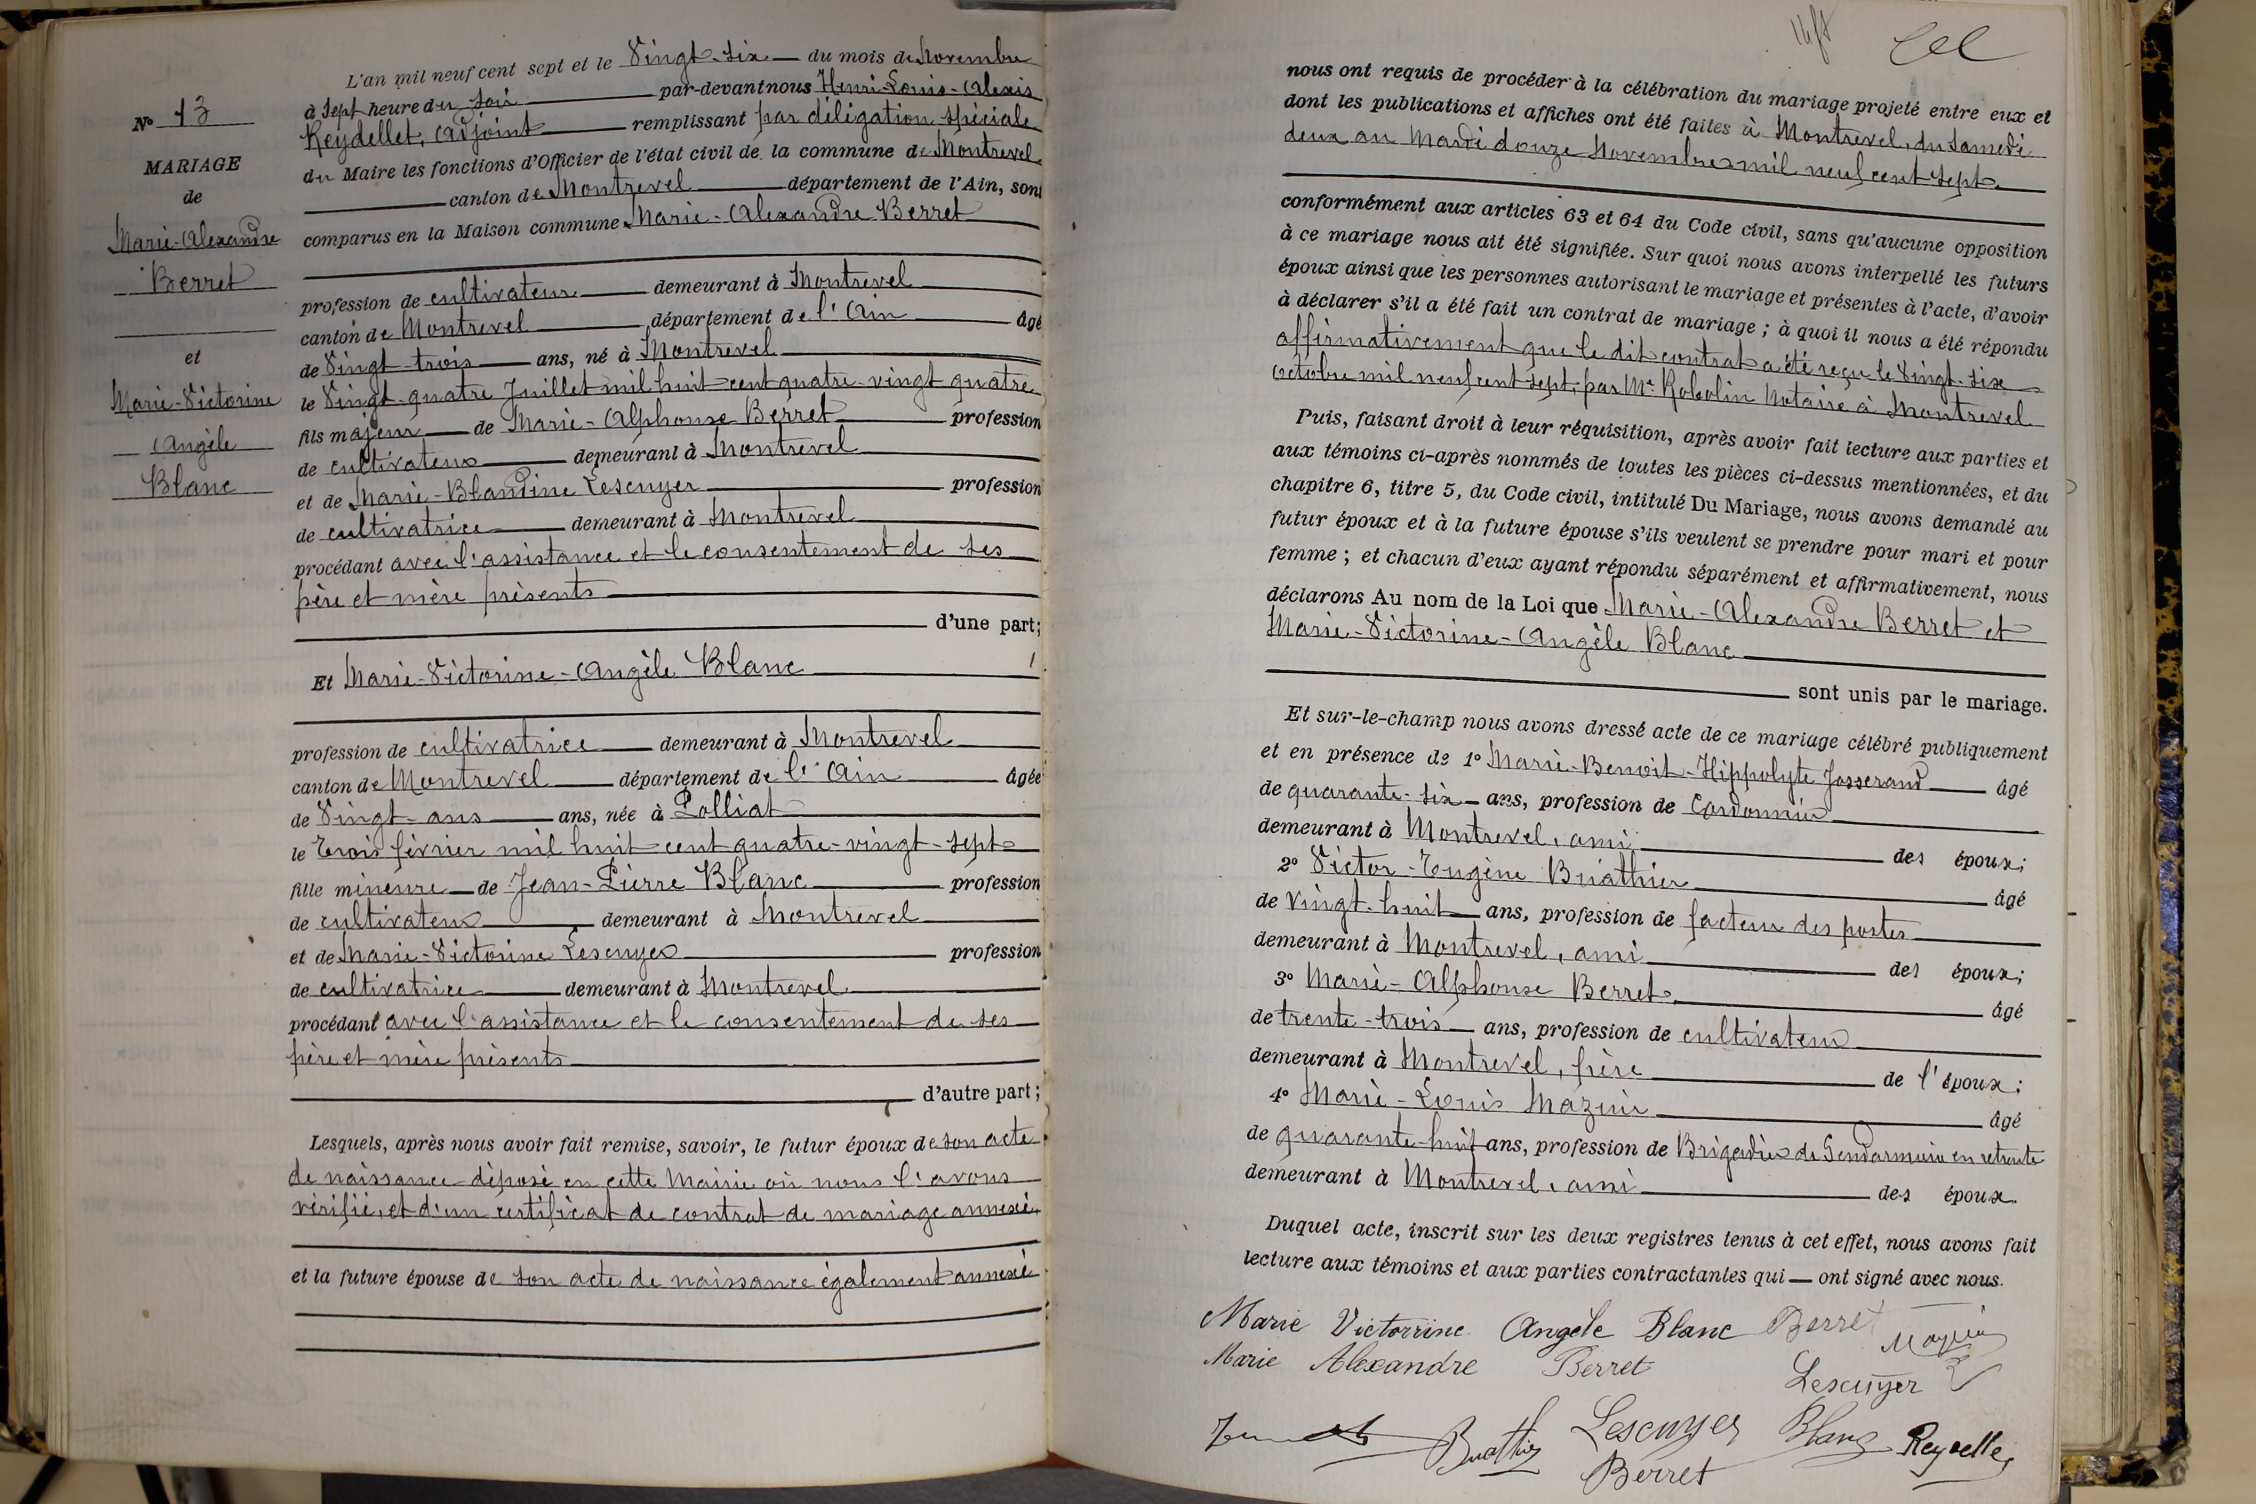 L'an mil neuf cent sept et le Vingt-six du mois de Novembre
à Sept heure du soir par-devant nous Henri-Louis-Alexis
Reydellet, Adjoint remplissant par délégation spéciale
du Maire les fonctions d'Officier de l'état civil de la commune de Montrevel
canton de Montrevel département de l'Ain, sont
comparus en la Maison commune Marie-Alexandre Berret
profession de cultivateur demeurant à Montrevel
canton de Montrevel département de l'Ain âgé
de Vingt-trois ans, né à Montrevel
le Vingt-quatre Juillet mil huit-cent quatre-vingt quatre
fils majeur de Marie-Alphonse Berret profession
de cultivateur demeurant à Montrevel
et de Marie-Blandine Lescuyer profession
de cultivatrice demeurant à Montrevel
procédant avec l'assistance et le consentement de ses
père et mère présents
d'une part;
Et Marie-Victorine-Angèle Blanc
profession de cultivatrice demeurant à Montrevel
canton de Montrevel département de l'Ain âgée
de Vingt-ans ans, née à Polliat
le Trois février mil huit-cent quatre-vingt-sept
fille mineure de Jean-Pierre Blanc profession
de cultivateur demeurant à Montrevel
et de Marie-Victorine Lescuyer profession
de cultivatrice demeurant à Montrevel
procédant avec l'assistance et le consentement de ses
père et mère présents
d'autre part;
Lesquels, après nous avoir fait remise, savoir, le futur époux de son acte
de naissance déposé en cette Mairie où nous l'avons
vérifié, et d'un certificat de contrat de mariage annexé,
et la future épouse de son acte de naissance également annexé
No 13
MARIAGE
de
Marie-Alexandre
Berret
et
Marie-Victorine
Angèle
Blanc
nous ont requis de procéder à la célébration du mariage projeté entre eux et
dont les publications et affiches ont été faites à Montrevel, du Samedi
deux au Mardi douze Novembre mil neuf cent sept
conformément aux articles 63 et 64 du Code civil, sans qu'aucune opposition
à ce mariage nous ait été signifiée. Sur quoi nous avons interpellé les futurs
époux ainsi que les personnes autorisant le mariage et présentes à l'acte, d'avoir
à déclarer s'il a été fait un contrat de mariage; à quoi il nous a été répondu
affirmativement que le dit contrat a été reçu le Vingt-six
octobre mil neuf cent sept, par Me Robolin Notaire à Montrevel
Puis, faisant droit à leur réquisition, après avoir fait lecture aux parties et
aux témoins ci-après nommés de toutes les pièces ci-dessus mentionnées, et du
chapitre 6, titre 5, du Code civil, intitulé Du Mariage, nous avons demandé au
futur époux et à la future épouse s'ils veulent se prendre pour mari et pour
femme; et chacun d'eux ayant répondu séparément et affirmativement, nous
déclarons Au nom de la Loi que Marie-Alexandre Berret et
Marie-Victorine-Angèle Blanc
sont unis par le mariage.
Et sur-le-champ nous avons dressé acte de ce mariage célébré publiquement
et en présence de 1º Marie-Benoit-Hippolyte Josserand âgé
de quarante-six ans, profession de Cordonnier
demeurant à Montrevel, ami des époux;
2º Victor-Eugène Buathier âgé
de vingt-huit ans, profession de facteur des postes
demeurant à Montrevel, ami des époux;
3º Marie-Alphonse Berret âgé
de trente-trois ans, profession de cultivateur
demeurant à Montrevel, frère de l'époux;
4º Marie-Louis Mazuir âgé
de quarante-huit ans, profession de Brigadier de Gendarmerie en retraite
demeurant à Montrevel, ami des époux.
Duquel acte, inscrit sur les deux registres tenus à cet effet, nous avons fait
lecture aux témoins et aux parties contractantes qui ont signé avec nous.
Marie Victorrine Angèle Blanc Berret Mazuir
Marie Alexandre Berret Lescuyer
Buathier Lescuyer Blanc Reydellet
Berret